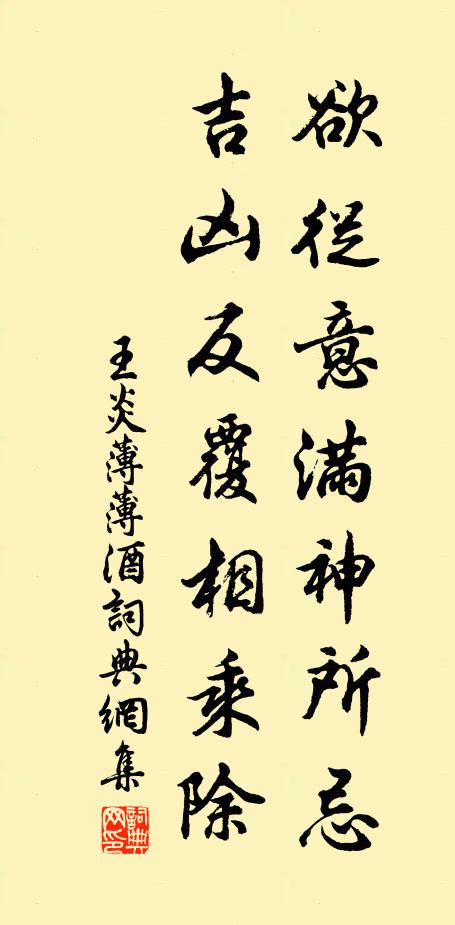 欲從意滿神所忌
吉凶反覆相乘除
王炎薄薄酒詞典網集
詞典網印